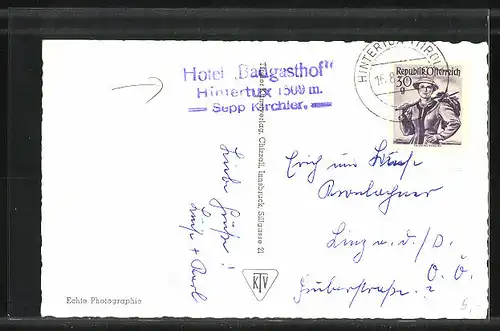 Hotel „Badgasthof"
Hintertux 1500 m.
Sepp Kirchler.
HINTERTUX (TIROL)
15.8
Republik Österreich
30
g
Tiroler Kunstverlag, Chizzali, Innsbruck, Sillgasse 21
Liebe Grüße!
Luise + Karl
Erich und Luise
Kronlachner
Linz a. d. /D.
O. Ö.
Huberstraße 2
KTV
Echte Photographie
5,-